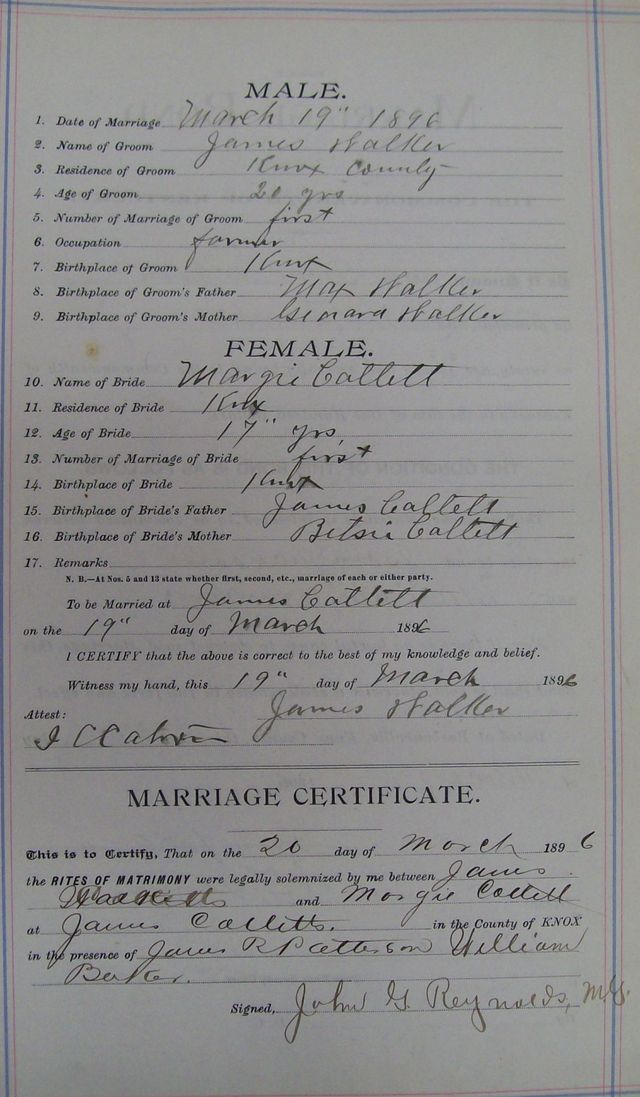 MALE.
1. Date of Marriage March 19" 1896
2. Name of Groom James Walker
3. Residence of Groom Knox County
4. Age of Groom 20 yrs
5. Number of Marriage of Groom first
6. Occupation farmer
7. Birthplace of Groom Knox
8. Birthplace of Groom's Father Max Walker
9. Birthplace of Groom's Mother Walker
FEMALE.
10. Name of Bride Margie Catlett
11. Residence of Bride Knox
12. Age of Bride 17" yrs,
13. Number of Marriage of Bride first
14. Birthplace of Bride Knox
15. Birthplace of Bride's Father James Catlett
16. Birthplace of Bride's Mother Betsie Catlett
17. Remarks
N. B.—At Nos. 5 and 13 state whether first, second, etc., marriage of each or either party.
To be Married at James Catlett
on the 19" day of March 1896
I CERTIFY that the above is correct to the best of my knowledge and belief.
Witness my hand, this 19" day of March 1896
James Walker
Attest:
MARRIAGE CERTIFICATE.
This is to Certify, That on the 20 day of March 1896
the RITES OF MATRIMONY were legally solemnized by me between James
and Margie Catlett
at James Catletts. in the County of KNOX
in the presence of James R Patterson William
Baker.
Signed, John G Reynolds, M.G.